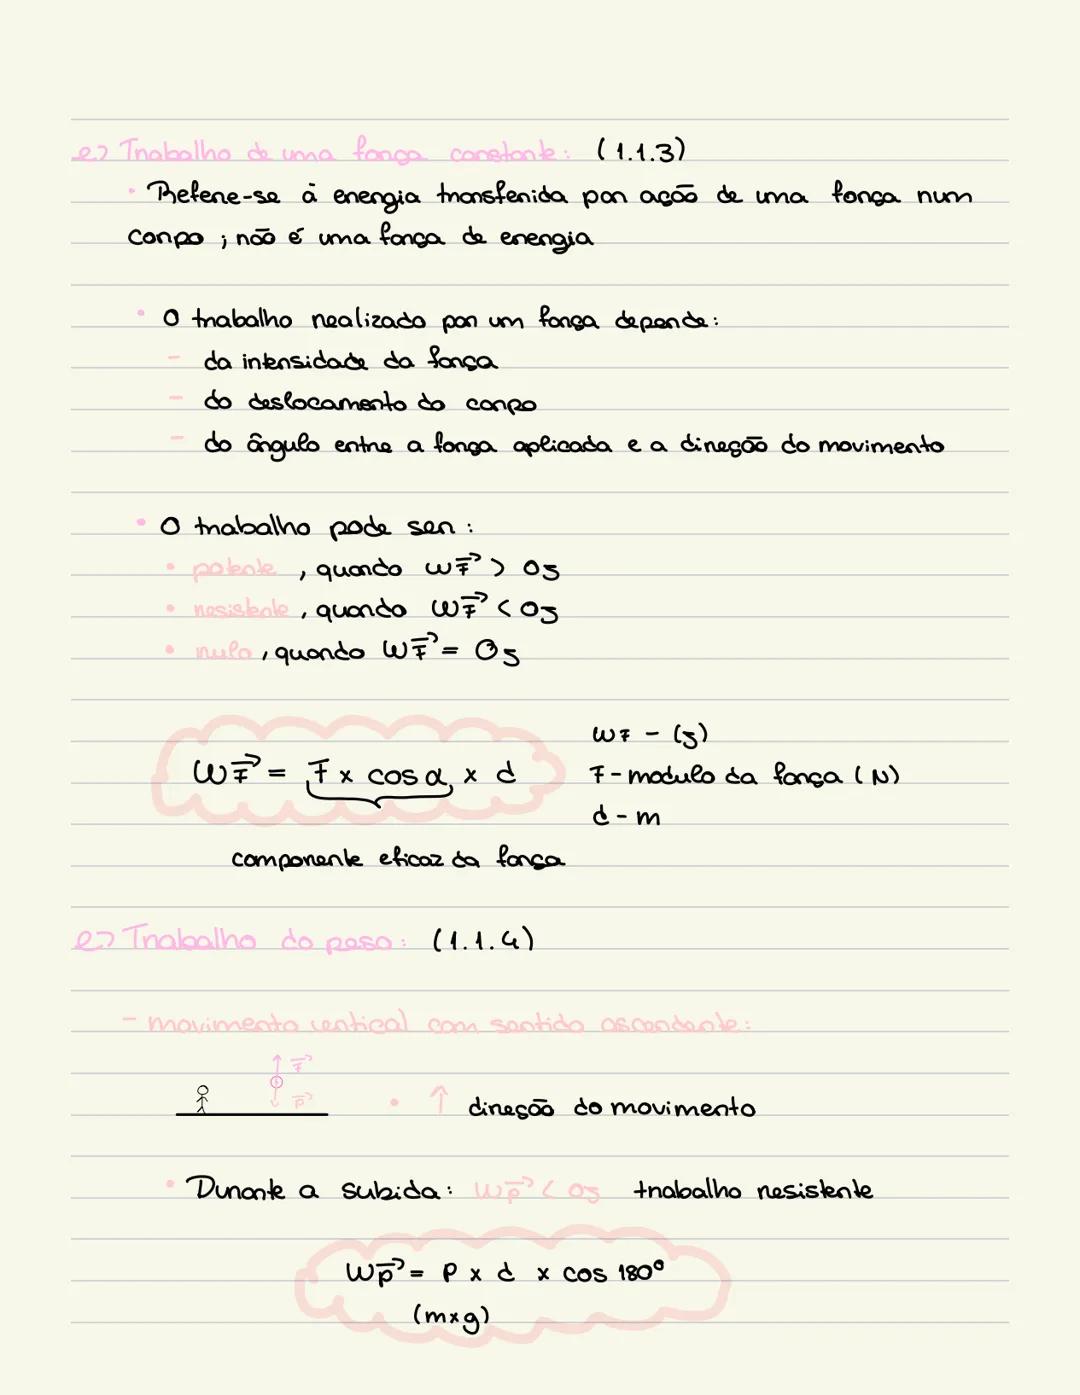 → Trabalho de uma força constante: (1.1.3)
• Refere-se à energia transferida por ação de uma força num
corpo ; não é uma força de energia
• O trabalho realizado por um força depende:
- da intensidade da força
- do deslocamento do corpo
- do ângulo entre a força aplicada e a direção do movimento
• O trabalho pode ser :
• potente , quando WF⃗ > 0J
• resistente , quando WF⃗ < 0J
• nulo , quando WF⃗ = 0J
WF - (J)
WF⃗ = F x cos α x d
F - modulo da força (N)
d - m
componente eficaz da força
→ Trabalho do peso: (1.1.4)
- movimento vertical com sentido ascendente:
F⃗
P⃗
• ↑ direção do movimento
• Durante a subida: WP⃗ < 0J trabalho resistente
WP⃗ = P x d x cos 180º
(mxg)